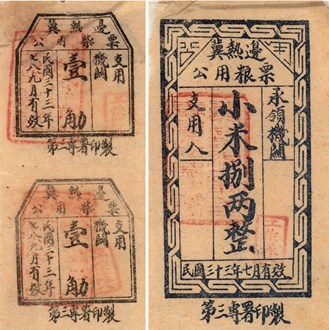 冀熱邊
公用粮票
支用機關
壹觔
民國三十三年
七八九月有效
第三專署印製
冀熱邊
公用粮票
支用機關
壹觔
民國三十三年
七八九月有效
第三專署印製
冀熱邊
公用粮票
承領機關
小米捌两整
支用人
民國三十三年七月有效
第三專署印製